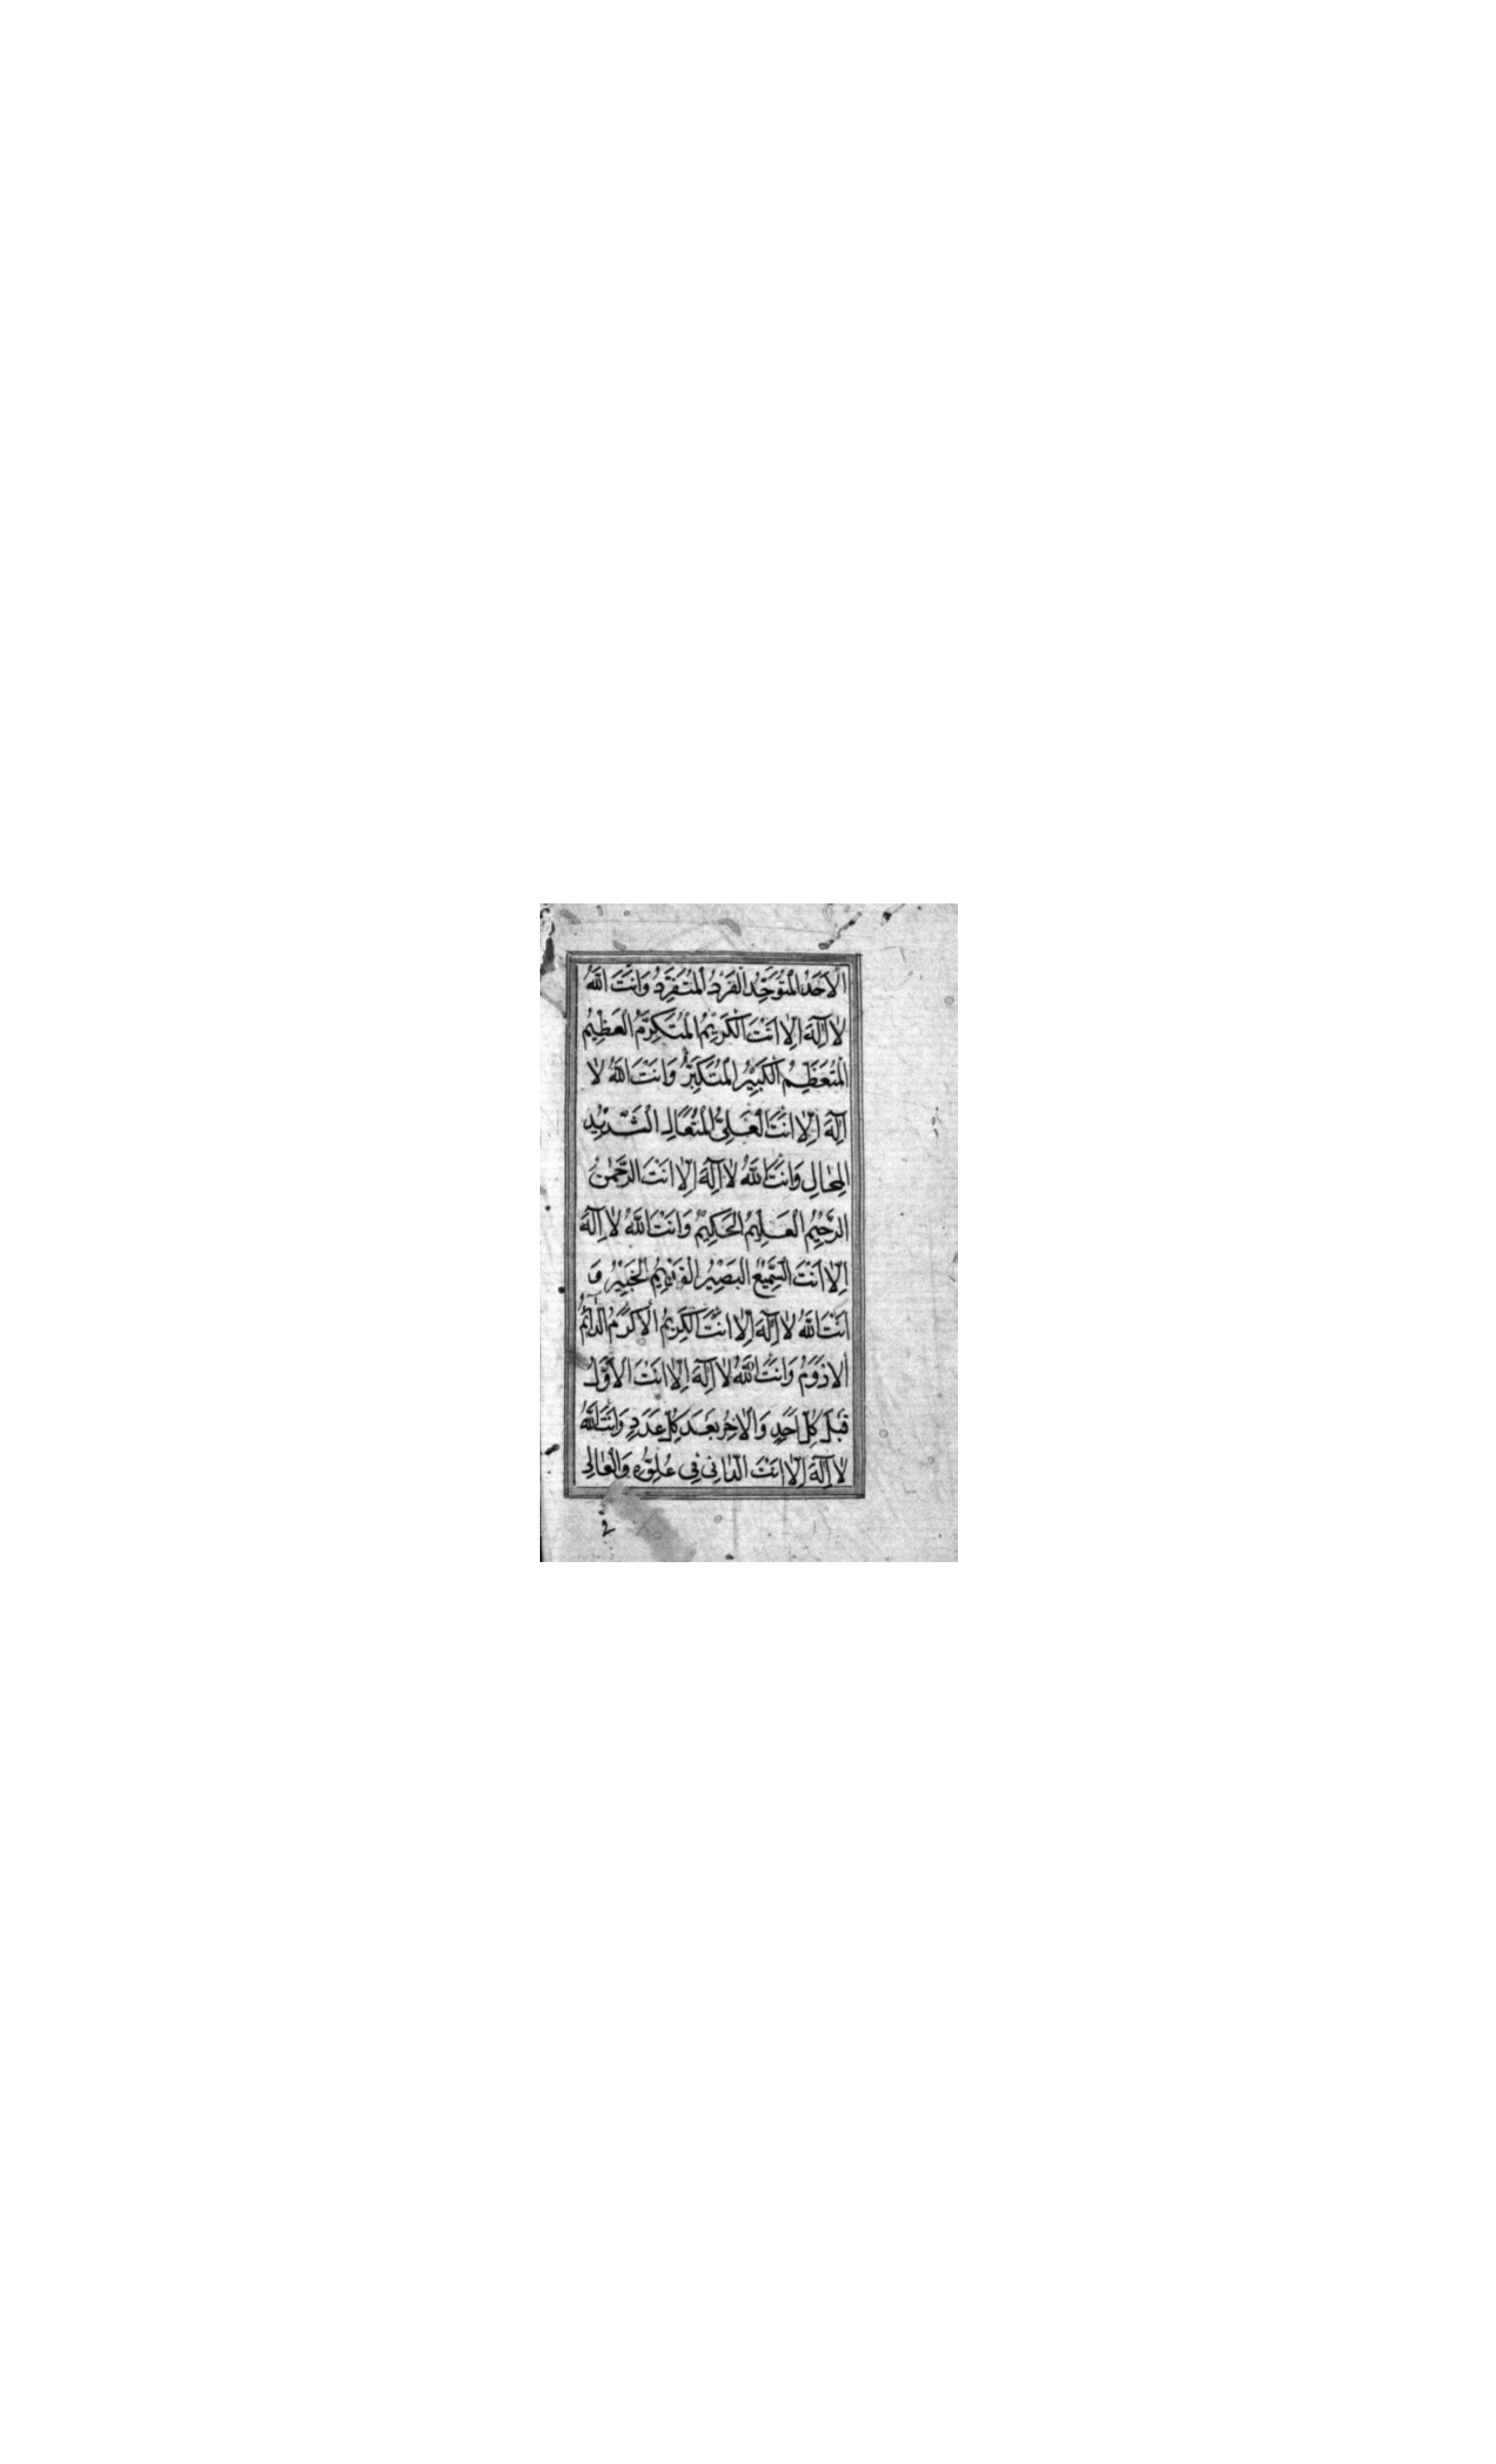 اَلْاَحَدُ الْمُتَوَحِّدُ الْفَرْدُ الْمُتَفَرِّدُ وَاَنْتَ اللّٰهُ
لَا اِلٰهَ اِلَّا اَنْتَ الْكَرِيْمُ الْمُتَكَرِّمُ الْعَظِيْمُ
الْمُتَعَظِّمُ الْكَبِيْرُ الْمُتَكَبِّرُ وَاَنْتَ اللّٰهُ لَا
اِلٰهَ اِلَّا اَنْتَ الْعَلِىُّ الْمُتَعَالِ الشَّدِيْدُ
الْمِحَالِ وَاَنْتَ اللّٰهُ لَا اِلٰهَ اِلَّا اَنْتَ الرَّحْمٰنُ
الرَّحِيْمُ الْعَلِيْمُ الْحَكِيْمُ وَاَنْتَ اللّٰهُ لَا اِلٰهَ
اِلَّا اَنْتَ السَّمِيْعُ الْبَصِيْرُ الْقَدِيْمُ الْخَبِيْرُ وَ
اَنْتَ اللّٰهُ لَا اِلٰهَ اِلَّا اَنْتَ الْكَرِيْمُ الْاَكْرَمُ الدَّآئِمُ
الْاَدْوَمُ وَاَنْتَ اللّٰهُ لَا اِلٰهَ اِلَّا اَنْتَ الْاَوَّلُ
قَبْلَ كُلِّ اَحَدٍ وَالْاٰخِرُ بَعْدَ كُلِّ عَدَدٍ وَاَنْتَ اللّٰهُ
لَا اِلٰهَ اِلَّا اَنْتَ الدَّانِى فِى عُلُوِّهِ وَالْعَالِى
فى